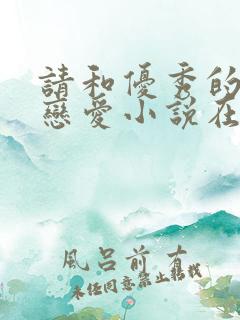 請和優秀的
戀愛小說在
風呂前有
未经同意禁止转载